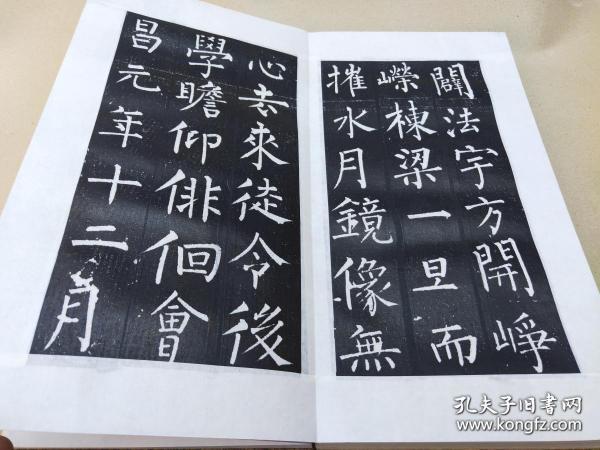 闢法宇方開崢
嶸棟梁一旦而
摧水月鏡像無
心去來徒令後
學瞻仰俳佪會
昌元年十二月
孔夫子旧书网
www.kongfz.com